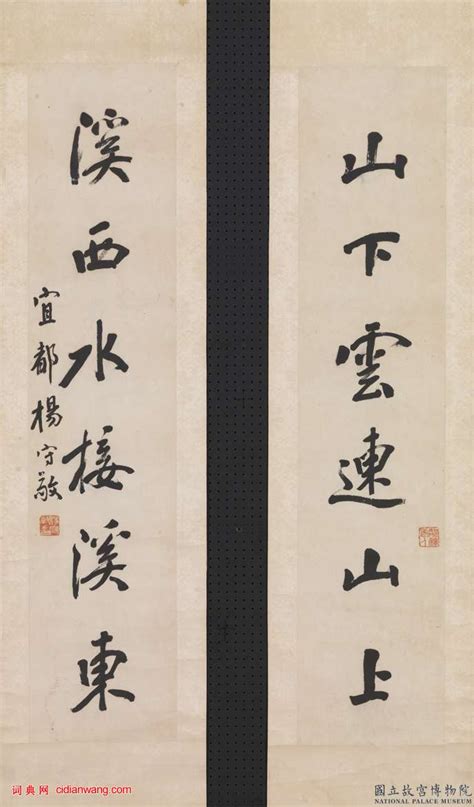 山下雲連山上
溪西水接溪東
宜都楊守敬
詞典网 cidianwang.com
國立故宮博物院
NATIONAL PALACE MUSEUM